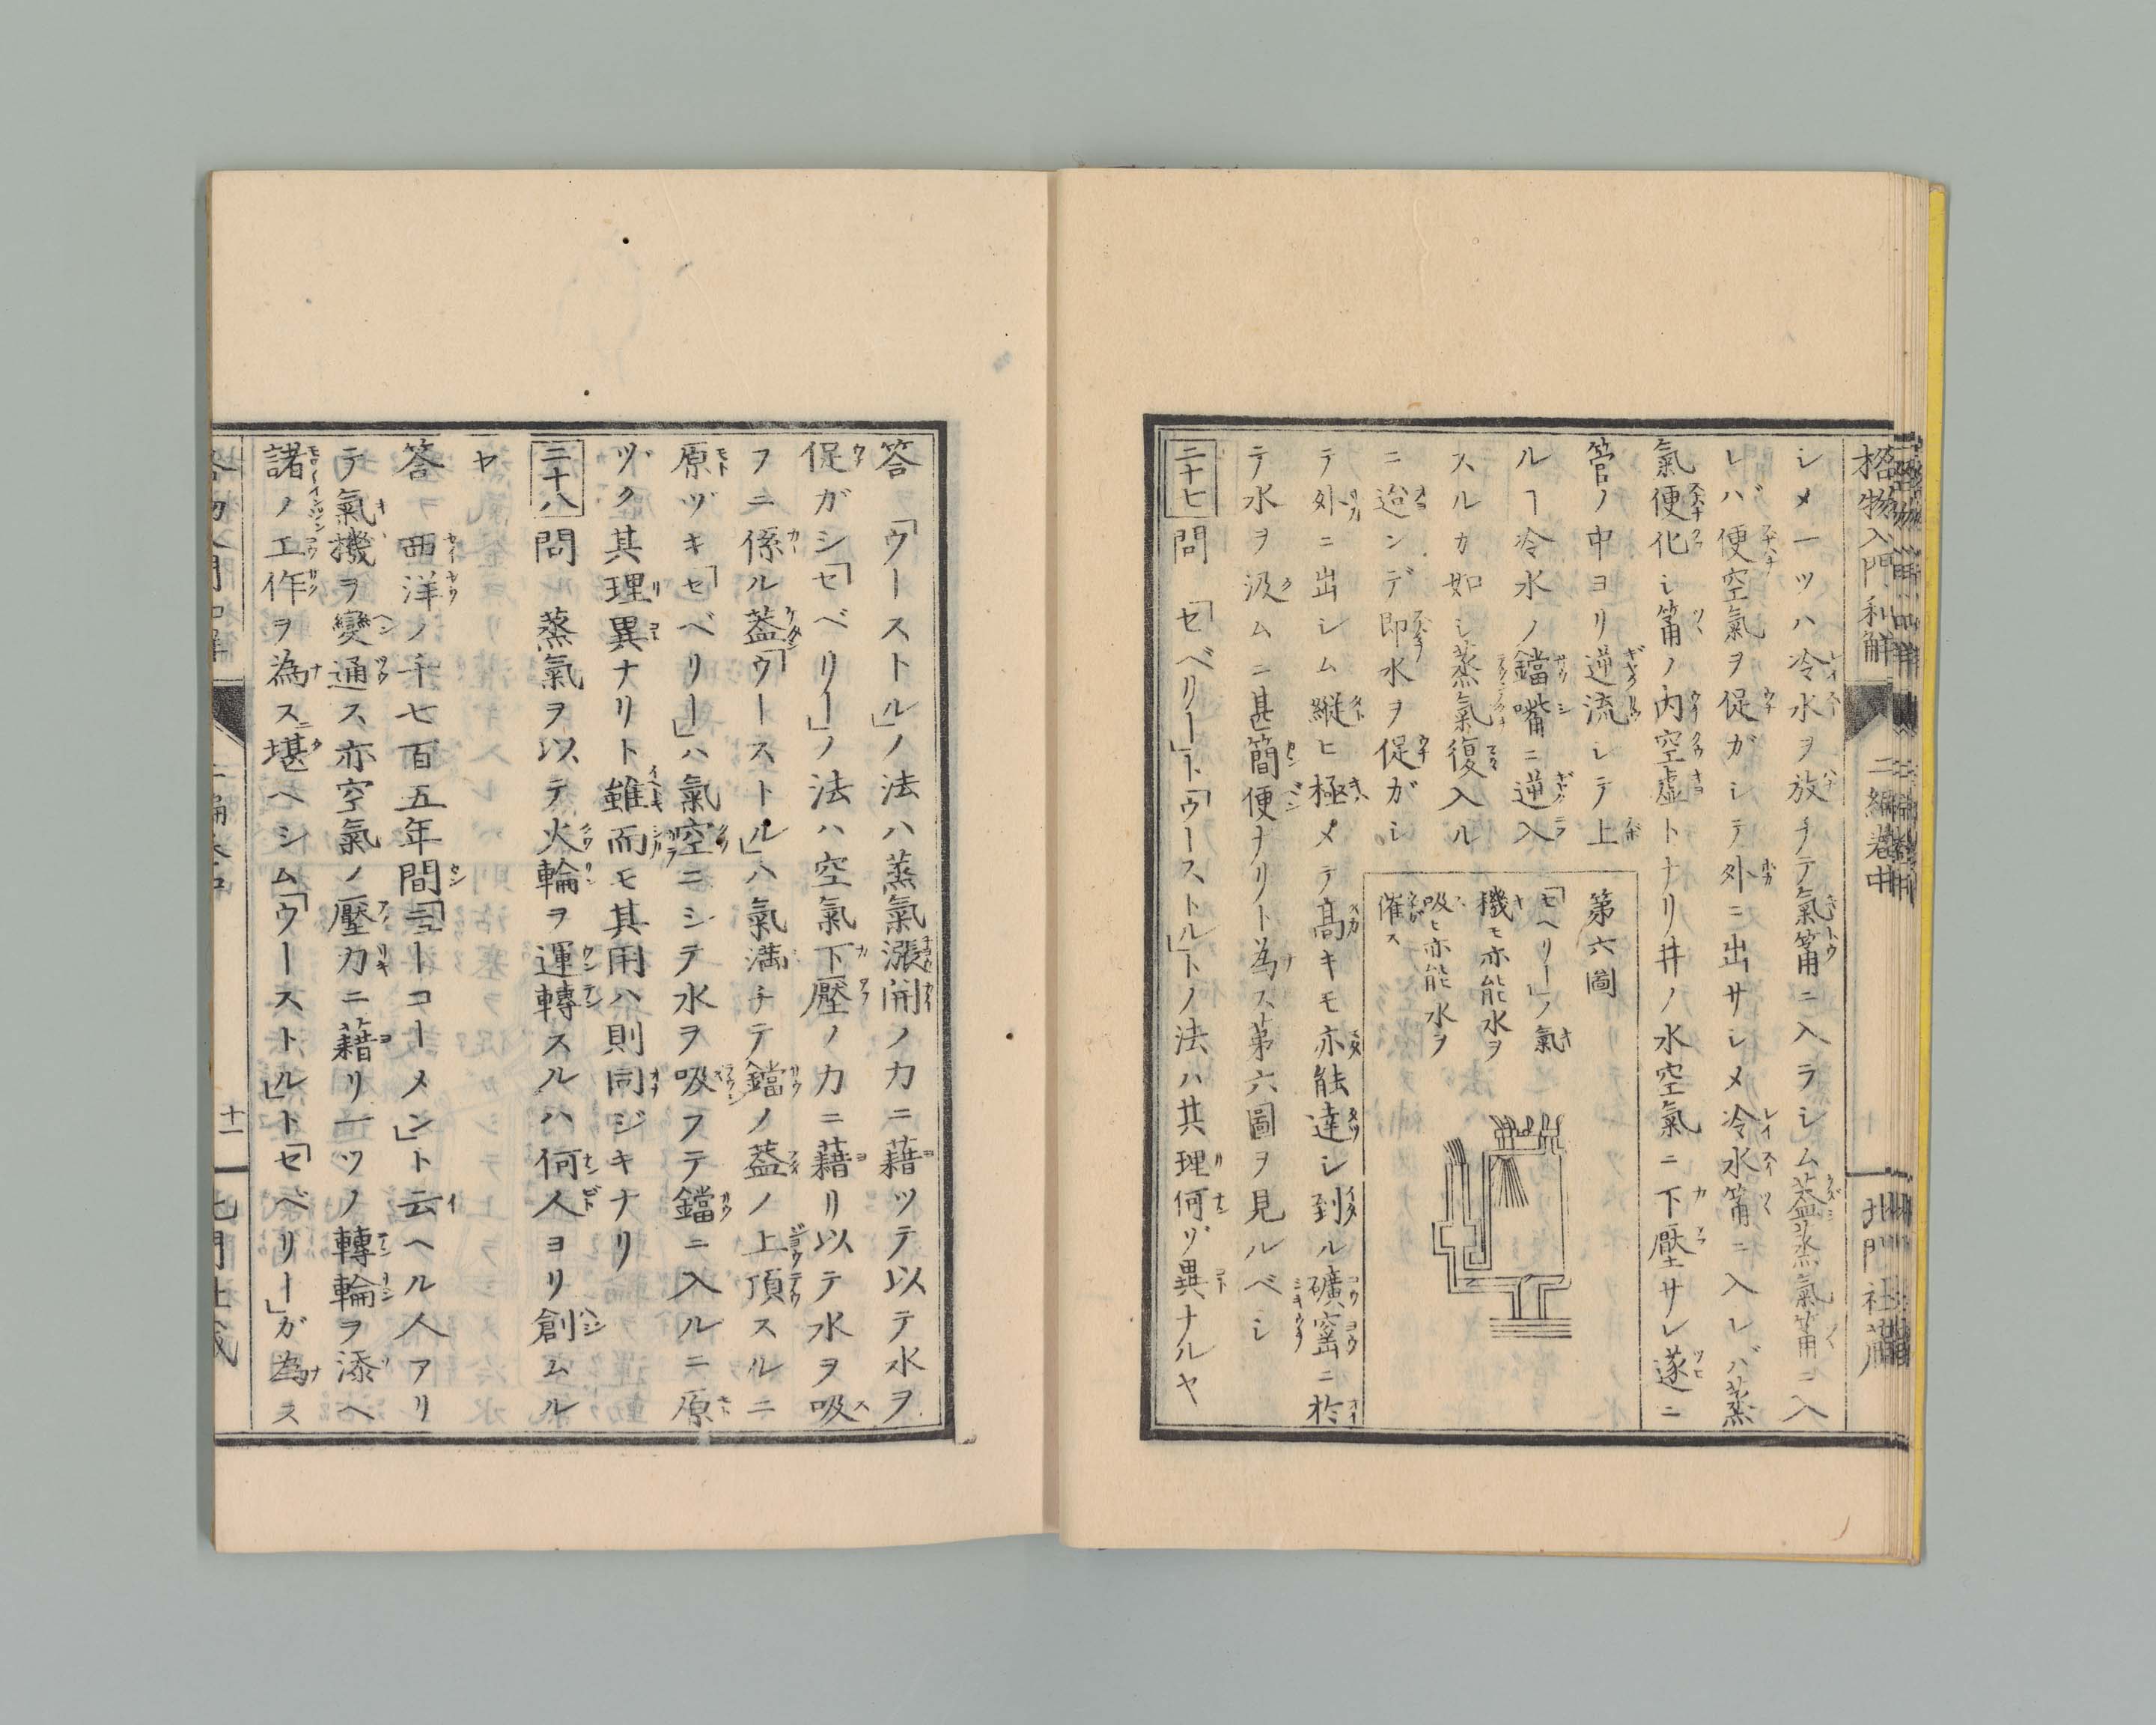 格物入門和解
二編卷中
北門社藏
シメ一ツハ冷水ヲ放チテ氣筩ニ入ラシム蓋蒸氣筩ニ入
レバ便空氣ヲ促ガシテ外ニ出サシメ冷水筩ニ入レバ蒸
氣便化シ筩ノ内空虚トナリ井ノ水空氣ニ下壓サレ遂ニ
管ノ中ヨリ逆流レテ上
ルヿ冷水ノ鐺嘴ニ逆入
スルカ如シ蒸氣復入ル
ニ迨ンデ即水ヲ促ガシ
第六圖
「セベリー」ノ氣
機モ亦能水ヲ
吸ヒ亦能水ヲ
催ス
テ外ニ出シム縱ヒ極メテ高キモ亦能達シ到ル礦窰ニ於
テ水ヲ汲ムニ甚簡便ナリト為ス第六圖ヲ見ルベシ
二十七問 「セベリー」ト「ウーストル」トノ法ハ其理何ゾ異ナルヤ
答「ウーストル」ノ法ハ蒸氣漲開ノ力ニ藉ツテ以テ水ヲ
促ガシ「セベリー」ノ法ハ空氣下壓ノ力ニ藉リ以テ水ヲ吸
フニ係ル蓋「ウーストル」ハ氣滿チテ鐺ノ蓋ノ上頂スルニ
原ヅキ「セベリー」ハ氣空ニシテ水ヲ吸フテ鐺ニ入ルニ原
ヅク其理異ナリト雖而モ其用ハ則同ジキナリ
二十八問 蒸氣ヲ以テ火輪ヲ運轉スルハ何人ヨリ創ムル
ヤ
答 西洋ノ千七百五年間「ニーコーメン」ト云ヘル人アリ
テ氣機ヲ變通ス亦空氣ノ壓力ニ藉リ一ツノ轉輪ヲ添ヘ
諸ノ工作ヲ為ス堪ヘシム「ウーストル」ト「セベリー」ガ為ス
十一